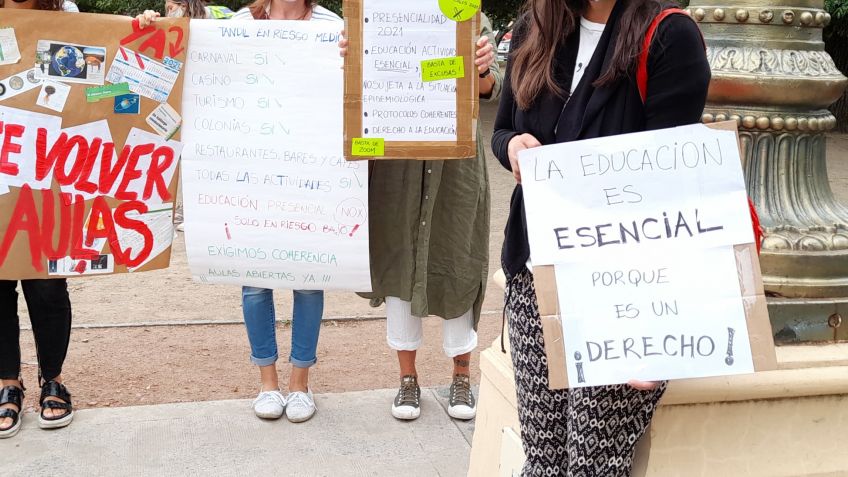 YA
E VOLVER
AULAS
TANDIL EN RIESGO MEDIO
CARNAVAL SÍ
CASINO SÍ
TURISMO SÍ
COLONIAS SÍ
RESTAURANTES, BARES Y CAFÉS
TODAS LAS ACTIVIDADES SÍ
EDUCACIÓN PRESENCIAL NO X
¡ SOLO EN RIESGO BAJO !
EXIGIMOS COHERENCIA
¡¡¡ AULAS ABIERTAS YA !!!
PRESENCIALIDAD
2021
EDUCACIÓN ACTIVIDAD
ESENCIAL,
BASTA DE
EXCUSAS
NO SUJETA A LA SITUACIÓN
EPIDEMIOLÓGICA
PROTOCOLOS COHERENTES
DERECHO A LA EDUCACIÓN
BASTA DE
ZOOM
LA EDUCACIÓN
ES
ESENCIAL
PORQUE
ES UN
¡DERECHO!